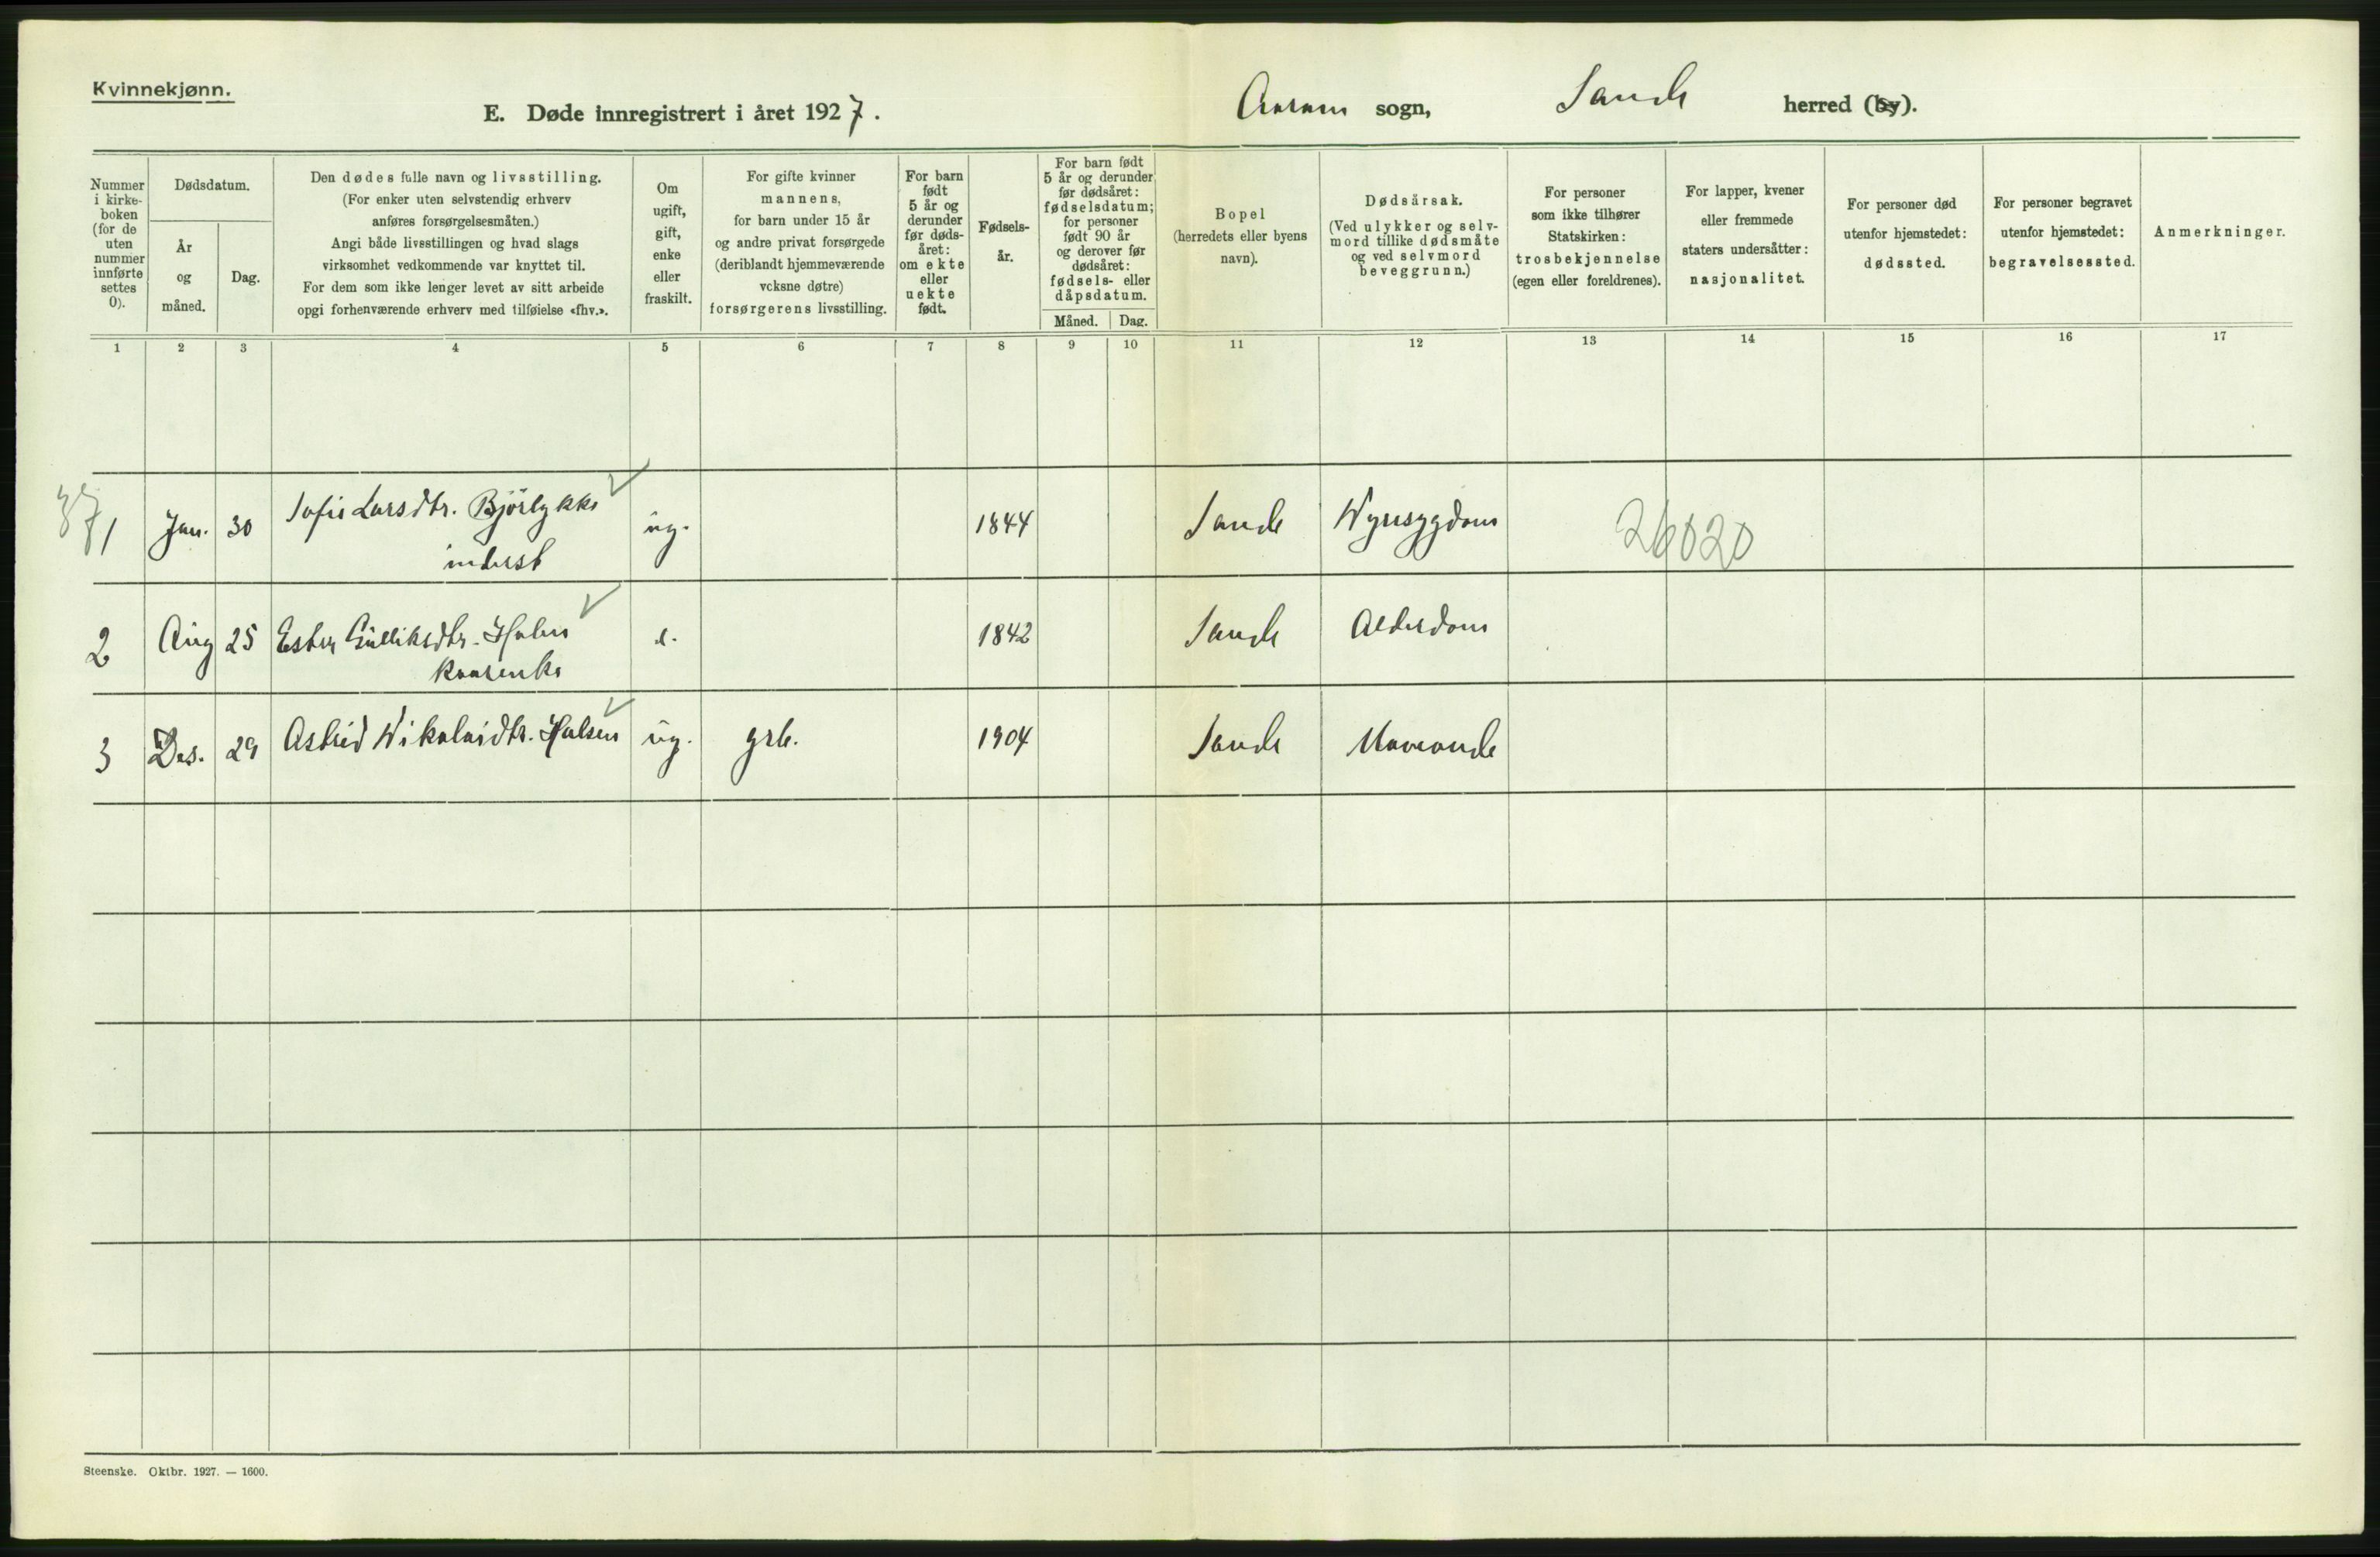 Kvinnekjønn.
E. Døde innregistrert i året 1927.
Aaram sogn, Sande herred (by).
Nummer i kirke-boken (for de uten nummer innførte settes 0).
Dødsdatum.
År og måned.
Dag.
Den dødes fulle navn og livsstilling.
(For enker uten selvstendig erhverv
anføres forsørgelsesmåten.)
Angi både livsstillingen og hvad slags
virksomhet vedkommende var knyttet til.
For dem som ikke lenger levet av sitt arbeide
opgi forhenværende erhverv med tilføielse «fhv.».
Om
ugift,
gift,
enke
eller
fraskilt.
For gifte kvinner
mannens,
for barn under 15 år
og andre privat forsørgede
(deriblandt hjemmeværende
vcksne døtre)
forsørgerens livsstilling.
For barn
født
5 år og
derunder
før døds-
året:
om ekte
eller
uekte
født.
Fødsels-
år.
For barn født
5 år og derunder
før dødsåret:
fødselsdatum;
for personer
født 90 år
og derover før
dødsåret:
fødsels- eller
dåpsdatum.
Måned. Dag.
Bopel
(herredets eller byens
navn).
Dødsårsak.
(Ved ulykker og selv-
mord tillike dødsmåte
og ved selvmord
beveggrunn.)
For personer
som ikke tilhører
Statskirken:
trosbekjennelse
(egen eller foreldrenes).
For lapper, kvener
eller fremmede
staters undersåtter:
nasjonalitet.
For personer død
utenfor hjemstedet:
dødssted.
For personer begravet
utenfor hjemstedet:
begravelsessted.
Anmerkninger.
1 2 3 4 5 6 7 8 9 10 11 12 13 14 15 16 17
1 Jan. 30 Sofie Larsdtr. Björlykke ug. 1844 Sande Nyresygdom
inderst
2 Aug 25 Ester Gulliksdtr. Halsen e. 1842 Sande Alderdom
kaarenke
3 Des. 29 Astrid Nikolaidtr. Halsen ug. grb. 1904 Sande Maveonde
Steenske. Oktbr. 1927. — 1600.